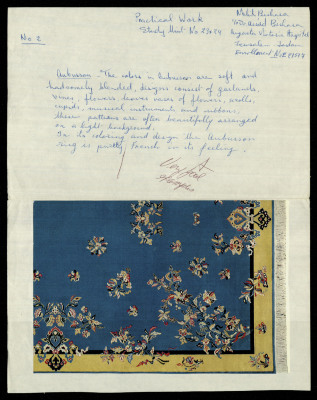 Practical Work
Study Unit No 23454
No 2
Malak
Augusta Victoria Hospital
Jerusalem - Jordan
Aubusson - The colors in Aubusson are soft and
handsomely blended, designs consist of garlands,
vines, flowers, vases of flowers, scrolls,
cupids, musical instruments and ribbons,
these patterns are often beautifully arranged
on a light background.
In its coloring and design the Aubusson
rug is purely French in its feeling.
A
Very good
Samples